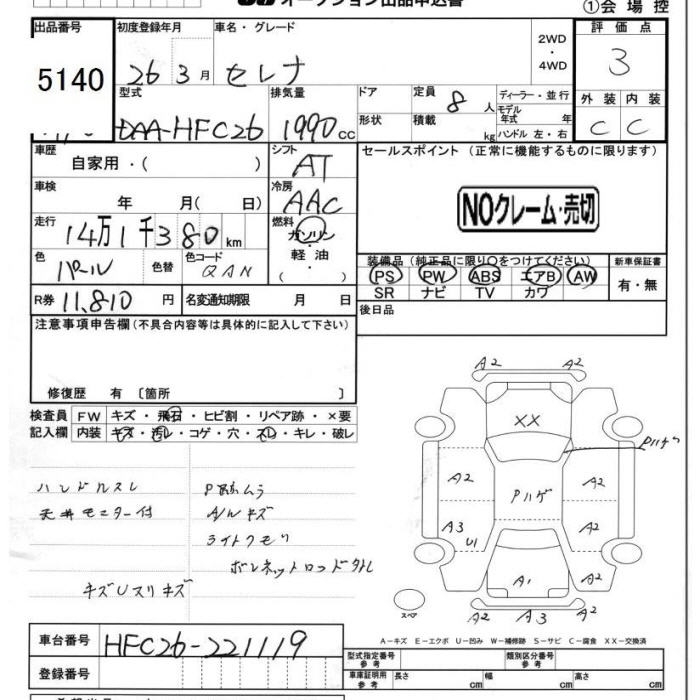 オークション出品申込書
①会場控
出品番号 初度登録年月 車名・グレード 2WD・4WD 評価点
5140 26 3月 セレナ 3
型式 排気量 ドア 定員 8人 ディーラー・並行 外装 内装
モデル年式 年
DAA-HFC26 1990cc 形状 積載 kg ハンドル 左・右 C C
車歴 自家用・( ) シフト AT セールスポイント (正常に機能するものに限ります)
車検 年 月( 日) 冷房 AAC NOクレーム・売切
走行 14万1千380km 燃料 ガソリン・軽油・( )
色 パール 色替 色コード QAN 装備品(純正品に限り○をつけてください) 新車保証書
PS PW ABS エアB AW 有・無
SR ナビ TV カワ
R券 11,810円 名変通知期限 月 日 後日品
注意事項申告欄(不具合内容等は具体的に記入して下さい)
修復歴 有 〔箇所 〕
検査員記入欄 FW キズ・飛石・ヒビ割・リペア跡・×要
内装 キズ・汚レ・コゲ・穴・スレ・キレ・破レ
ハンドルスレ
天井モニター付
P部ムラ
A/Wキズ
ライトクモリ
ボンネットロッド外レ
キズUスリキズ
A2 A2
XX
Pハゲ
A2 Pハゲ A2
A3 U1 A2
A1 A2
スペア A2 A3 A2
A-キズ E-エクボ U-凹み W-補修跡 S-サビ C-腐食 XX-交換済
車台番号 HFC26-221119
登録番号
型式指定番号 参考 類別区分番号 参考
車庫証明用 参考 長さ cm 幅 cm 高さ cm